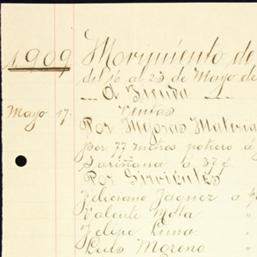 1909 Movimiento de
del 16 al 23 de Mayo de
A Tienda
Mayo 17. Ventas
Por Mejoras Materia
por 77 metros potrero á
Sariñana á 37 ¢
Por Sirvientes
Feliciano Jaquez a
Valente Mota "
Felipe Luna "
Luis Moreno "